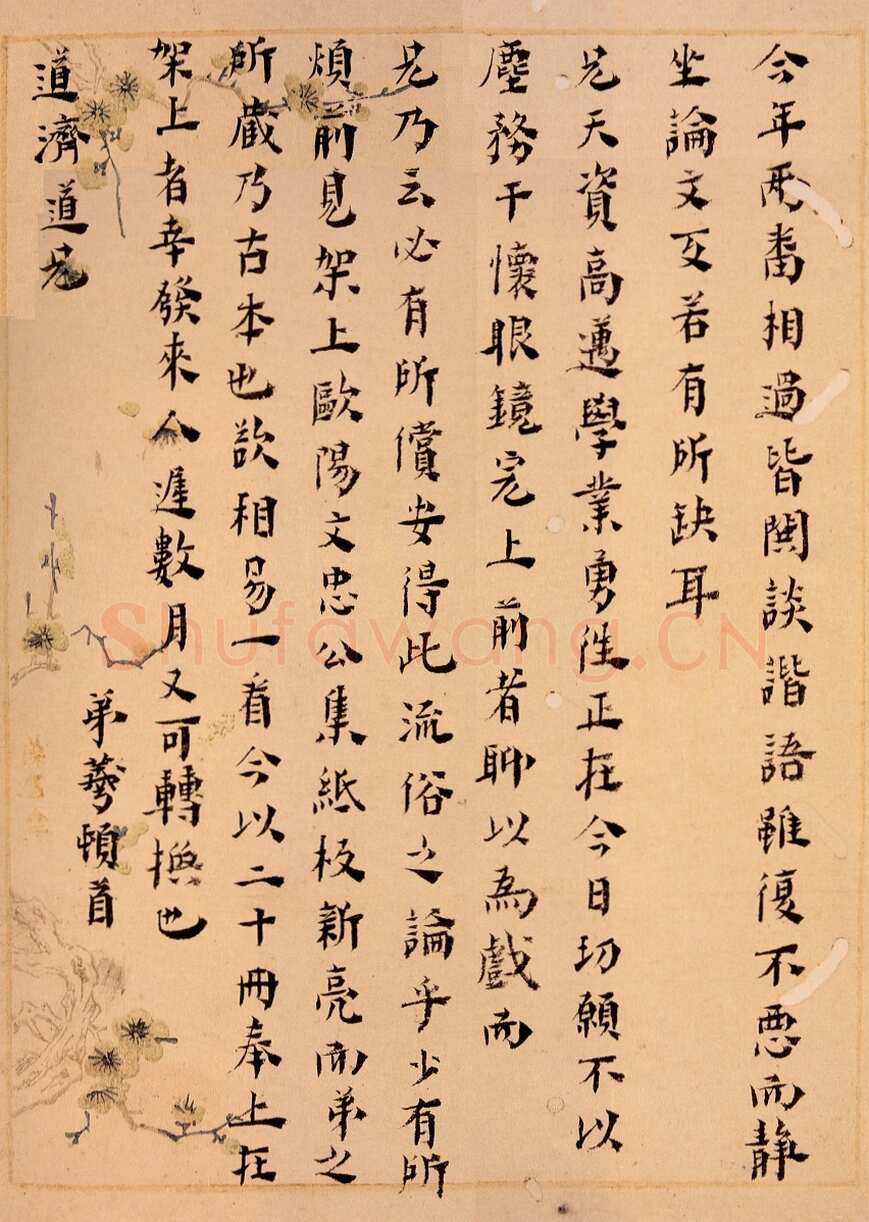 今年两番相過皆閑談諧語雖復不惡而静
坐論文互若有所缺耳
兄天資高邁學業勇往正在今日切願不以
塵務干懷眼鏡完上前者聊以為戲而
兄乃云必有所償安得此流俗之論乎少有所
煩前見架上歐陽文忠公集紙板新亮而弟之
所蔵乃古本也欲相易一看今以二十冊奉上在
架上者幸發來八遲數月又可轉換也
弟頓首
道濟道兄
Shufawang.CN